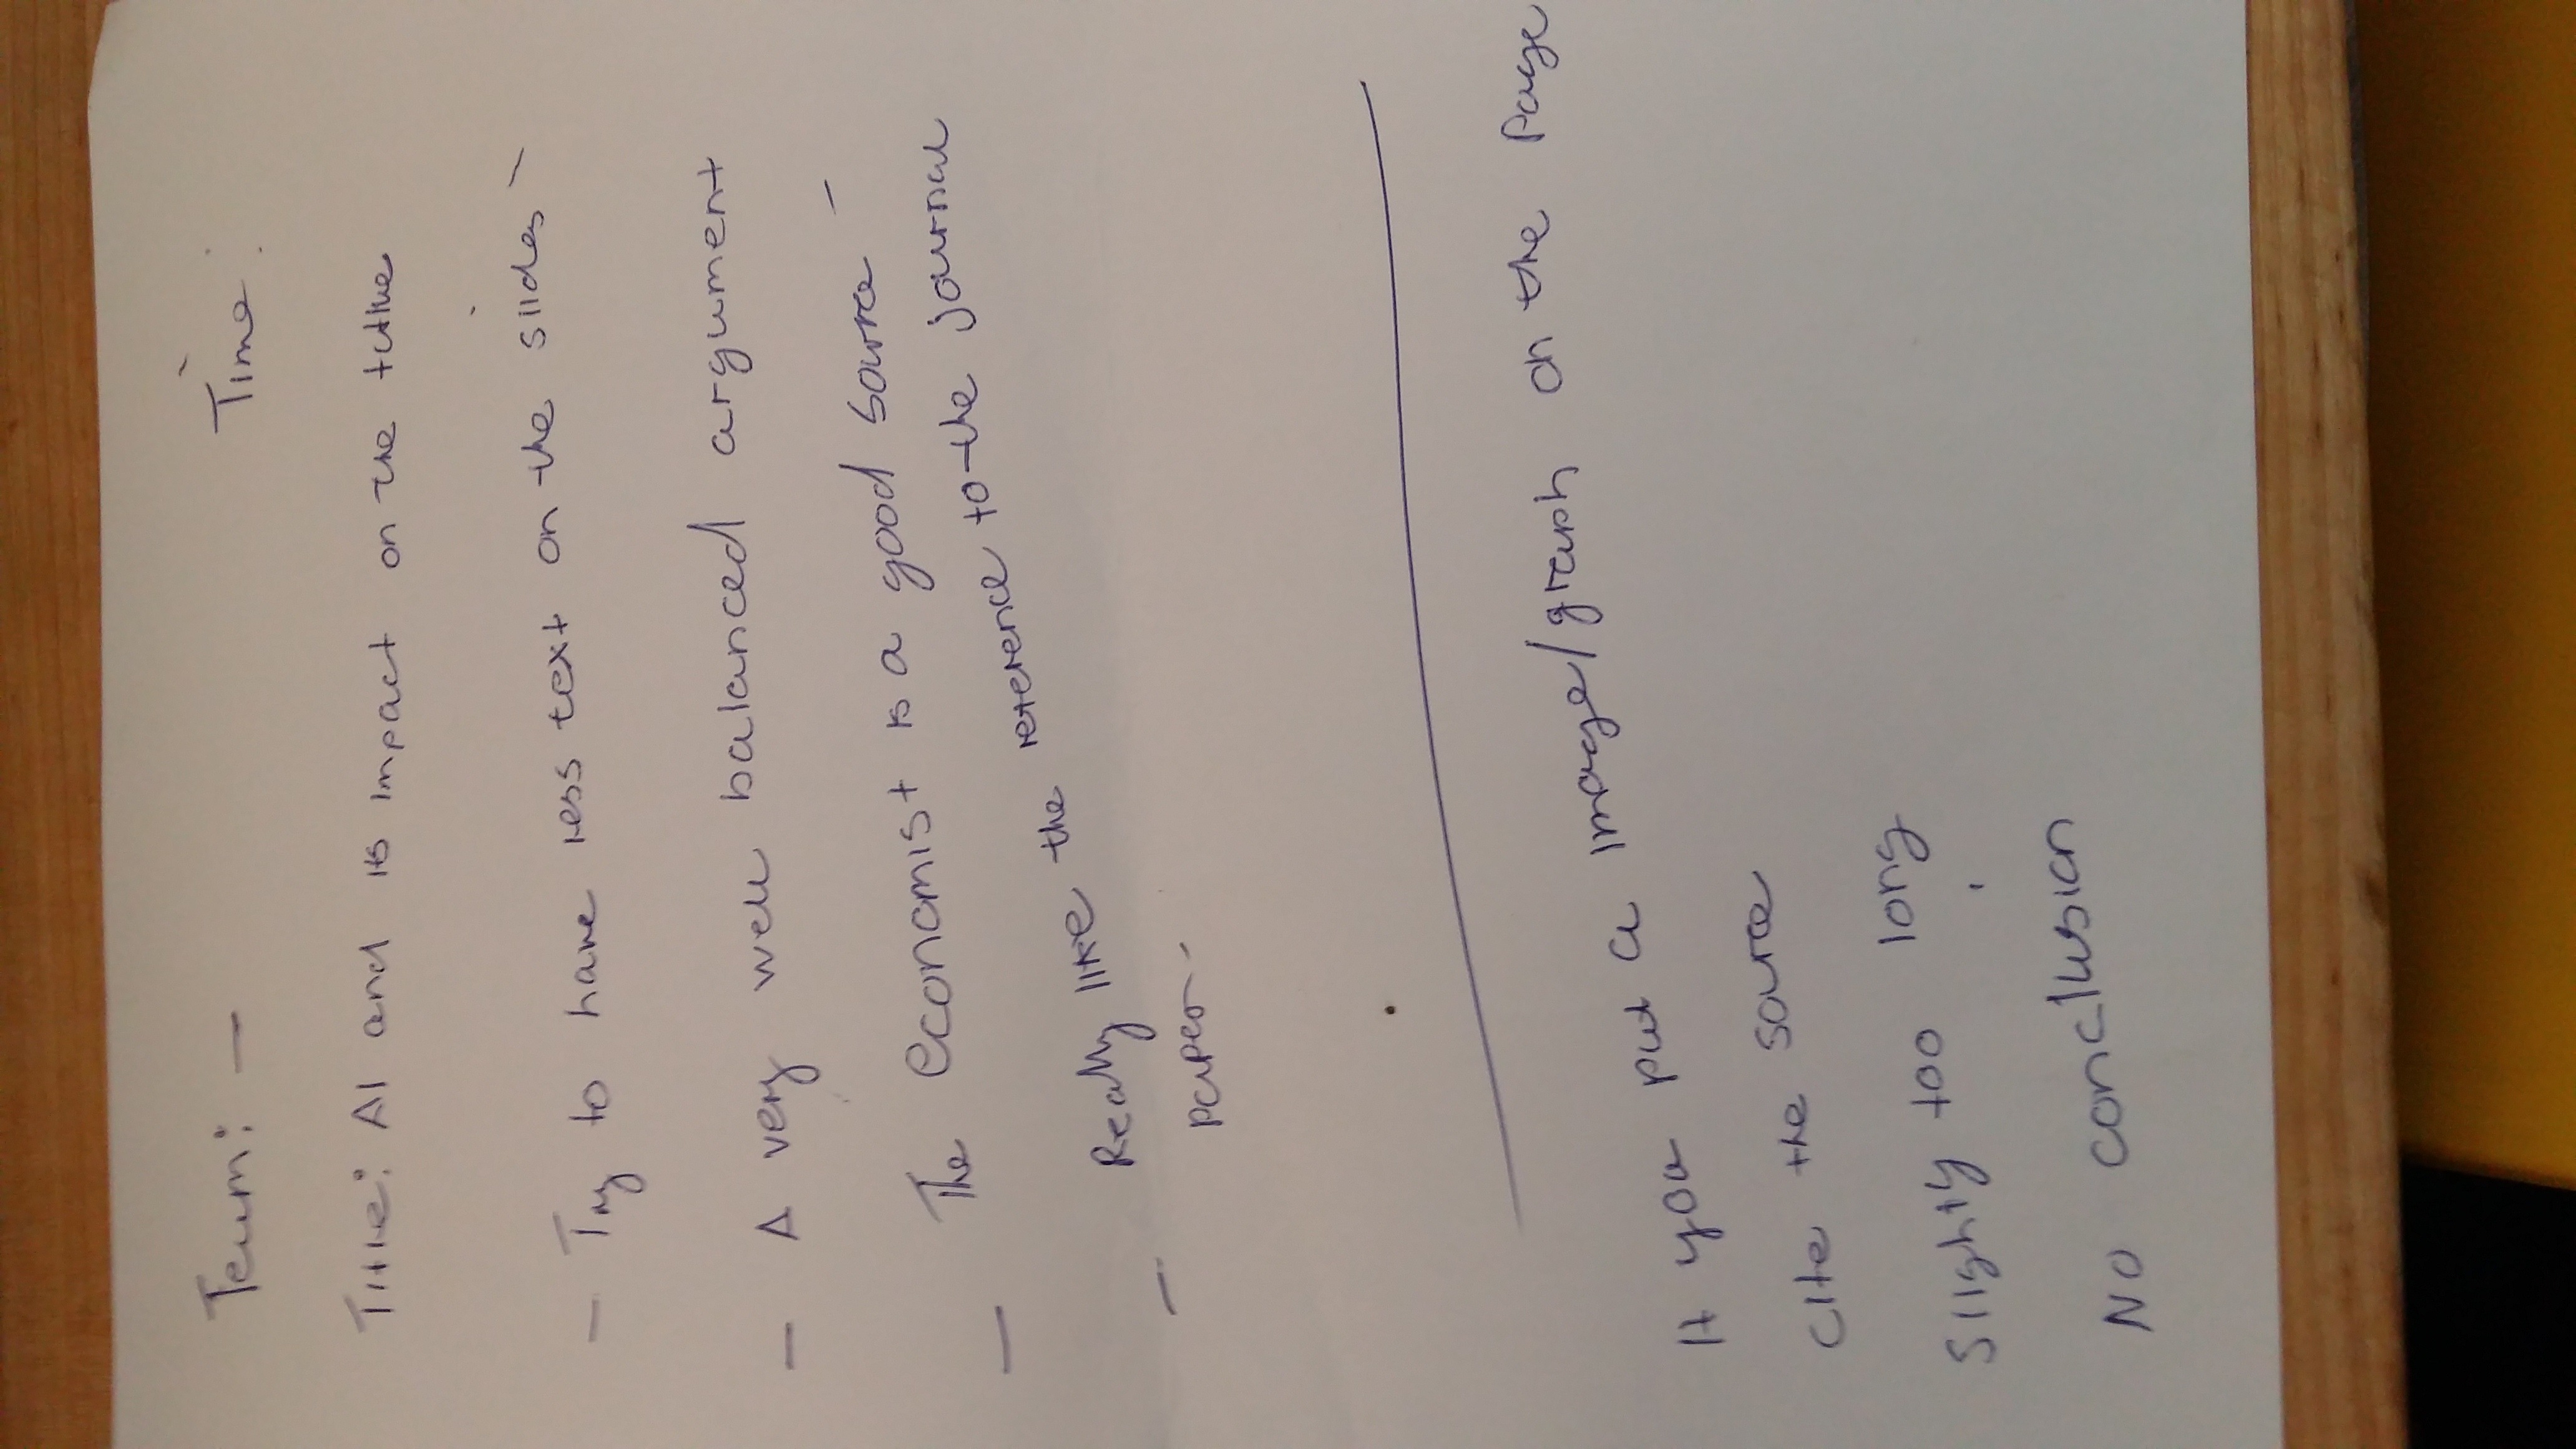 Team: — Time:
Title: AI and its impact on the future
— Try to have less text on the slides -
— A very well balanced argument
— The economist is a good source -
— Really like the reference to the journal
paper -
If you put a image/graph on the page
cite the source
Slighty too long
No concllusion